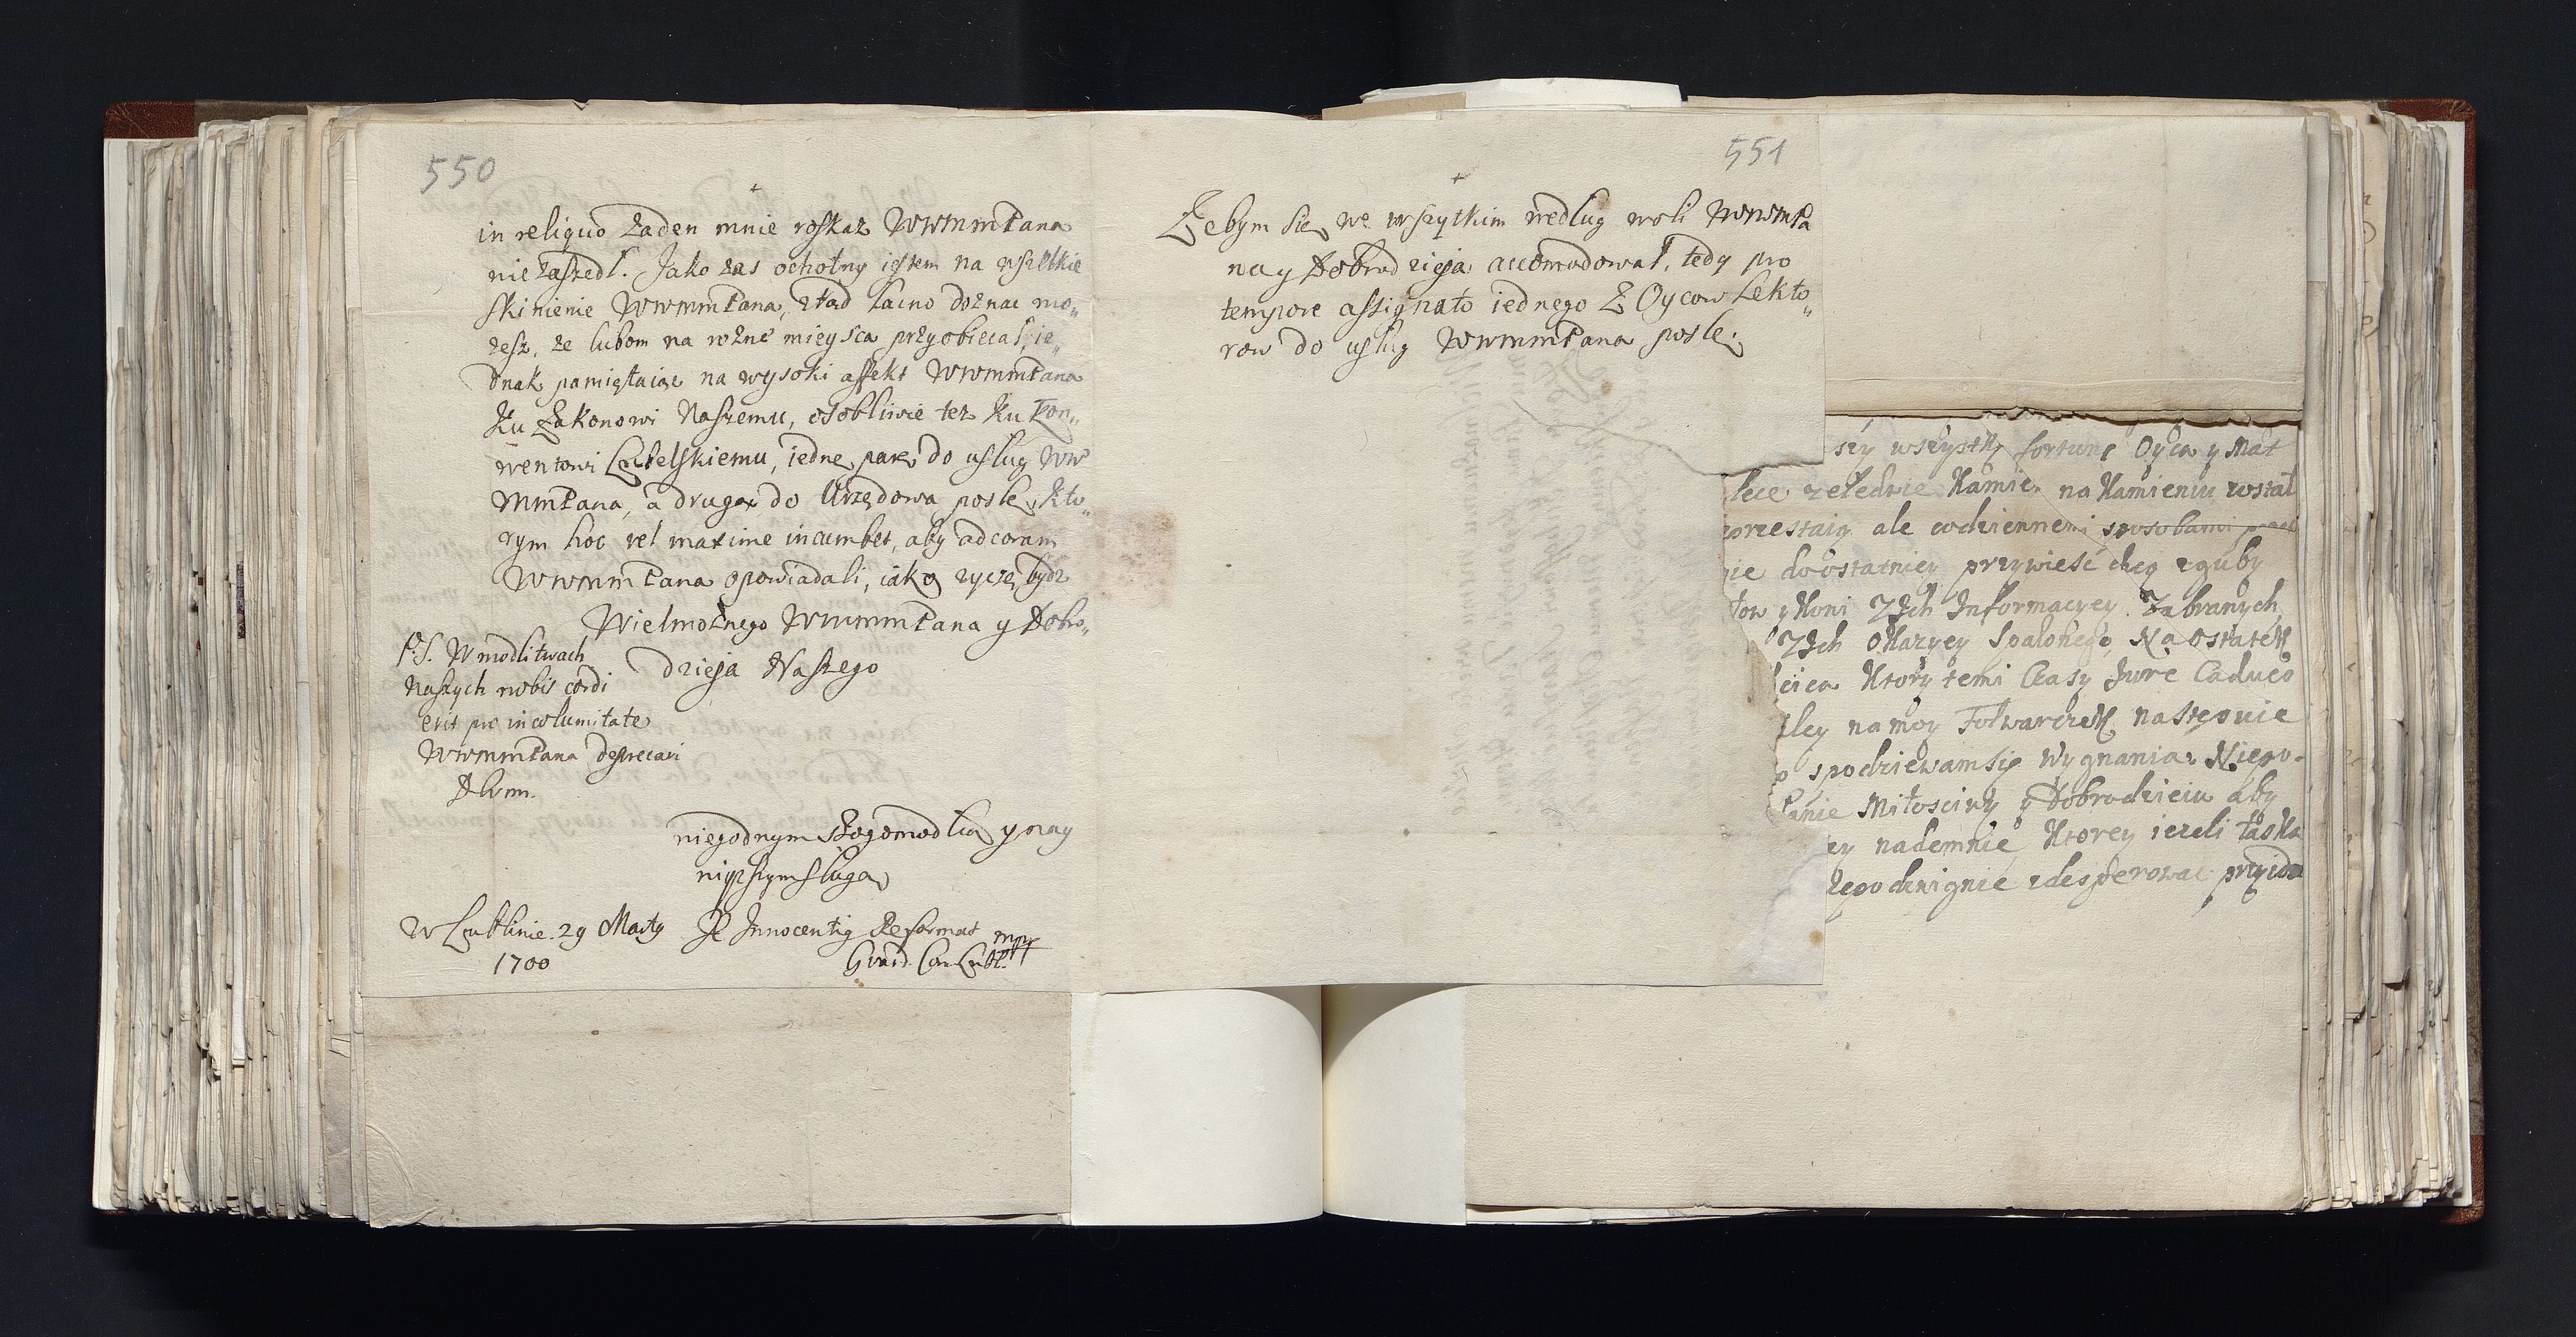 550
in reliquo żaden mnie roskaz WWMMPana
nie zaszedł. Jako zas ochotny iestem na wszelkie
skinienie WWMMPana, ztąd łacno doznac mo„
zesz, ze lubom na rożne mieysca przyobiecał, ie„
dnak pamiętaiąc na wysoki affekt WWMMPana
Ku Zakonowi Naszemu, osobliwie tez Ku Kon„
wentowi Lubelskiemu, iednę parę do usług WW
MMPana, a drugą do Urzędowa poslę, kto„
rym hoc vel maxime incumbet, aby ad coram
WWMMPana opowiadali, iako zyczę bydz
Wielmożnego WMMMPana y Dobro„
dzieja Naszego
P.S. W modlitwach
Naszych nobis cordi
erit pro incolumitate
WWMMPana deprecari
Dnum.
niegodnym Bogomodlcą y nay
niższym sługą
W Lublinie. 29 Marty
1700
Innocenty Reformat mpp
Gvard. Con. Lubl.
551
Żebym się we wszytkim według woli WWMPa
na y Dobrodzieja accomodował, tedy pro
tempore assignato iednego z Oycow Lekto„
row do usług WWMMPana poslę.
szy wszystkę fortunę Oyca y Mat
lece zeledwie Kamię. na Kamieniu został
przestaią ale codziennemi sposobami
nie do ostatniey przywieść chcą zguby
tow y Koni Zich Informacyey Zabranych
Zich Okazyey Spalonego, Na Ostatek
cica Ktory temi Czasy Jure Caduco
ley na moy Folwarczek następuie
spodziewam się Wygnania. Niepo-
Panie Miłosciwy y Dobrodzieiu aby
ey nademnie, Ktorey iezeli łaska
zego dzwignie zdesperowac przyidzie